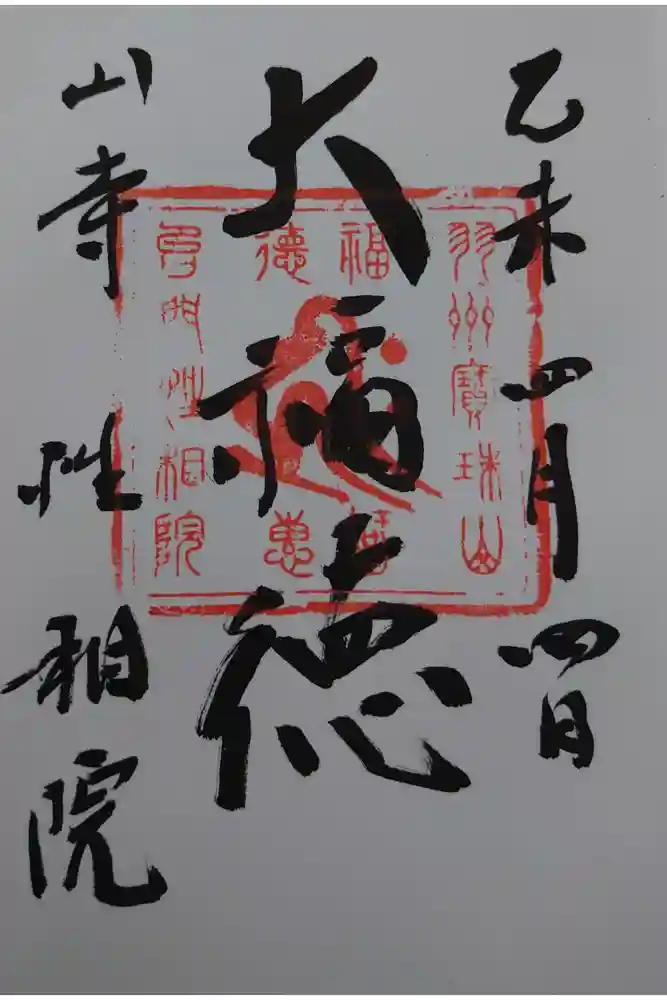 乙未四月四日
大福徳
山寺性相院
羽州寶珠山
福徳
性相院